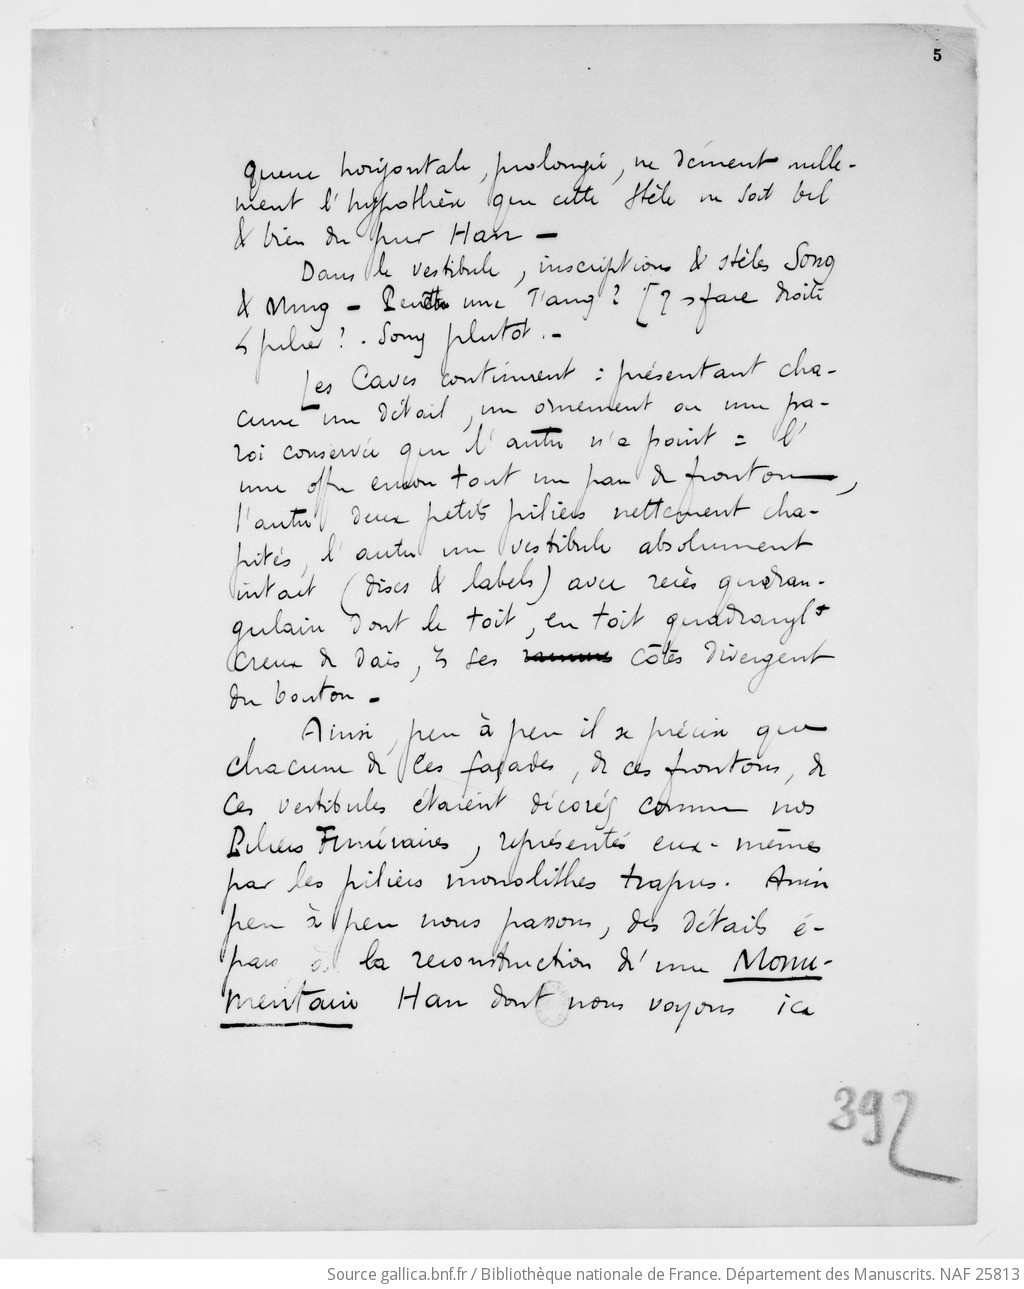 5
queue horizontale, prolongée, ne dément nulle-
ment l'hypothèse que cette stèle ne soit bel
& bien du pur Han —
Dans le vestibule, inscriptions & stèles Song
& Ming — Peut-être une T'ang ? [ face droite
pilier ? . Song plutôt . —
Les Caves continuent : présentant cha-
cune un détail, un ornement ou une pa-
roi conservée que l'autre n'a point = l'
une offre encore tout un pan de fronton,
l'autre deux petits piliers nettement cha-
pités, l'autre un vestibule absolument
intact (discs & labels) avec recès quadran-
gulaire dont le toit, en toit quadrangl+
creux de dais, ses côtés divergent
du bouton —
Ainsi, peu à peu il se précise que
chacune de ces façades, de ces frontons, de
ces vestibules étaient décorés comme nos
Piliers Funéraires, représentés eux-mêmes
par les piliers monolithes trapus. Ainsi
peu à peu nous passons, des détails é-
pars à la reconstruction d'une Monu-
mentaire Han dont nous voyons ici
392
Source gallica.bnf.fr / Bibliothèque nationale de France. Département des Manuscrits. NAF 25813